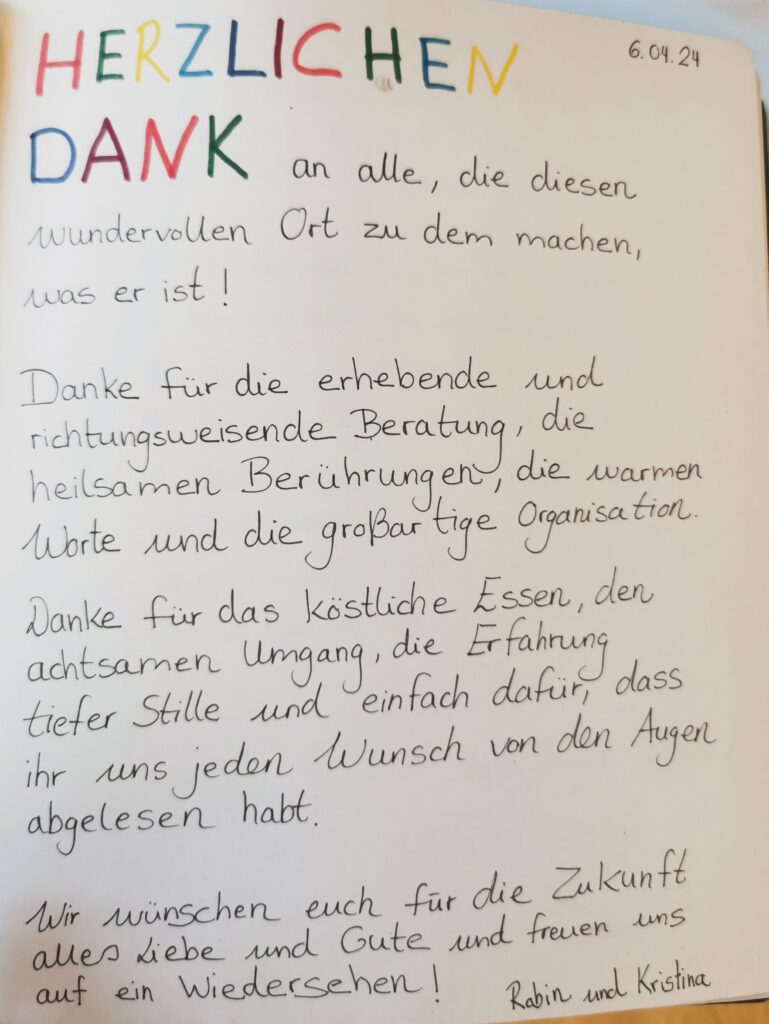 HERZLICHEN 6.04.24
DANK an alle, die diesen
wundervollen Ort zu dem machen,
was er ist!
Danke für die erhebende und
richtungsweisende Beratung, die
heilsamen Berührungen, die warmen
Worte und die großartige Organisation.
Danke für das köstliche Essen, den
achtsamen Umgang, die Erfahrung
tiefer Stille und einfach dafür, dass
ihr uns jeden Wunsch von den Augen
abgelesen habt.
Wir wünschen euch für die Zukunft
alles Liebe und Gute und freuen uns
auf ein Wiedersehen!
Rabin und Kristina